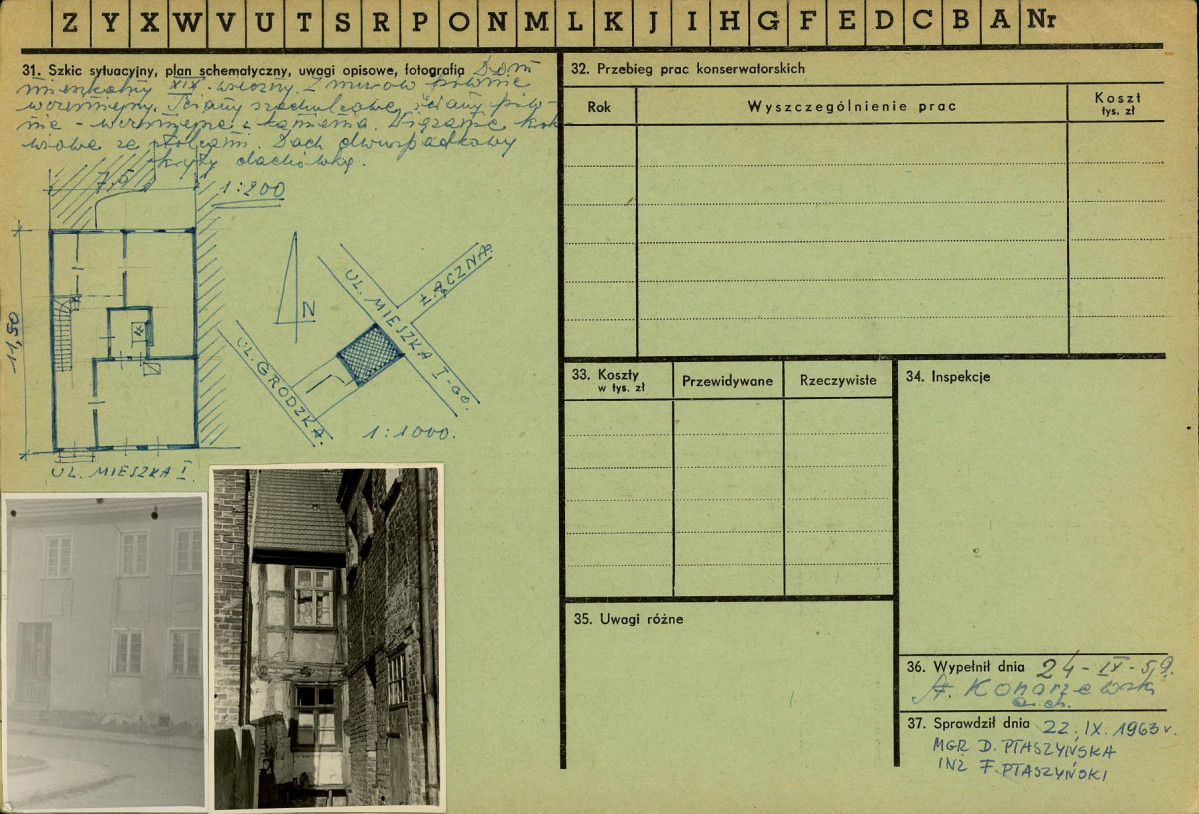 Z Y X W V U T S R P O N M L K J I H G F E D C B A Nr
31. Szkic sytuacyjny, plan schematyczny, uwagi opisowe, fotografia Dom
mieszkalny XIX-wieczny.
Ściany szachulcowe, ściany piw-
nic - z kamienia. kro-
kwiowe ze stolcami. Dach dwuspadkowy
kryty dachówką.
7,5
1:200
11,50
UL. MIESZKA I.
N
UL. MIESZKA I-GO.
ŁĄCZNA.
UL. GRODZKA.
1:1000.
32. Przebieg prac konserwatorskich
Rok
Wyszczególnienie prac
Koszt
tys. zł
33. Koszty
w tys. zł
Przewidywane
Rzeczywiste
34. Inspekcje
35. Uwagi różne
36. Wypełnił dnia 24-IX-59.
A. Konarzewska
37. Sprawdził dnia 22.IX.1963 r.
MGR D. PTASZYŃSKA
INŻ F. PTASZYŃSKI